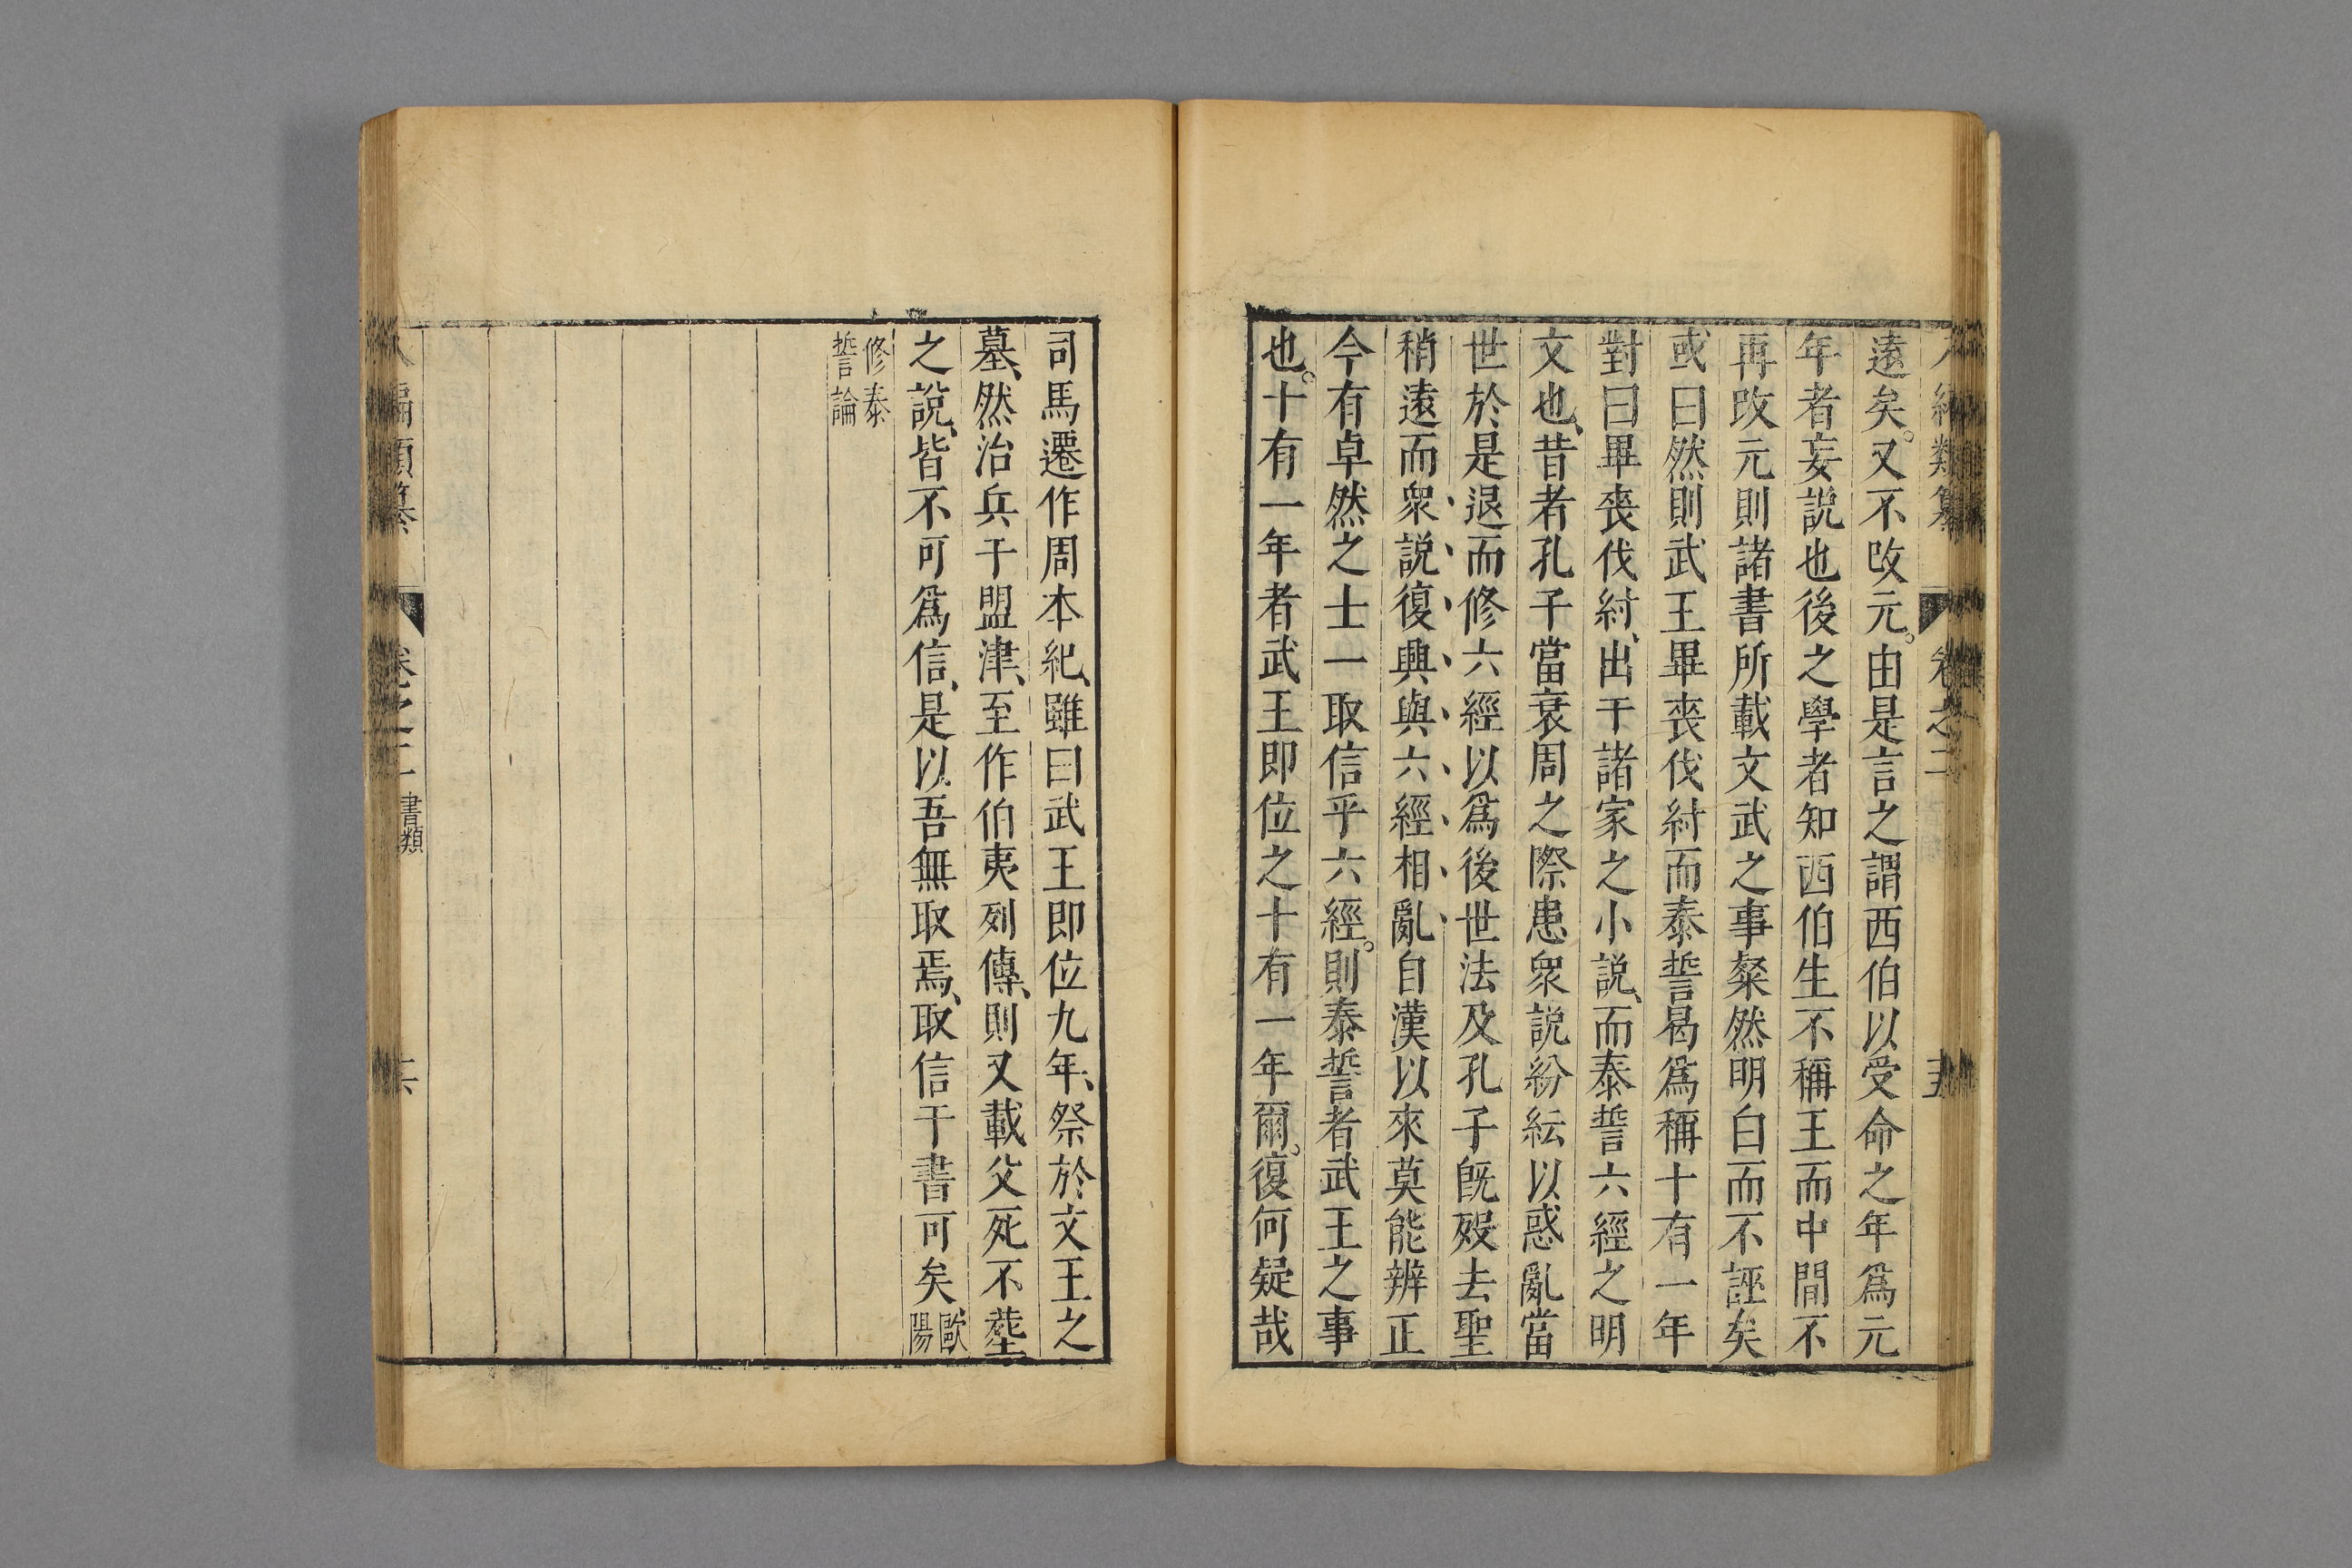 遠矣。又不改元。由是言之謂西伯以受命之年爲元
年者妄説也後之學者知西伯生不稱王而中間不
再改元則諸書所載文武之事粲然明白而不誣矣
或曰然則武王畢喪伐紂而泰誓曷爲稱十有一年
對曰畢喪伐紂、出于諸家之小説、而泰誓六經之明
文也、昔者孔子當衰周之際患衆説紛紜以惑亂當
世於是退而修六經以爲後世法及孔子旣歿去聖
稍遠而衆、説、復、興、與、六、經、相、亂、自漢以來莫能辨正
今有卓然之士一取信乎六經。則泰誓者武王之事
也。十有一年者武王即位之十有一年爾。復何疑哉
司馬遷作周本紀、雖曰武王即位九年、祭於文王之
墓、然治兵于盟津、至作伯夷列傳、則又載父死不塟
之説、皆不可爲信、是以吾無取焉、取信于書可矣歐陽
修泰誓論
編類纂
卷之二
書類